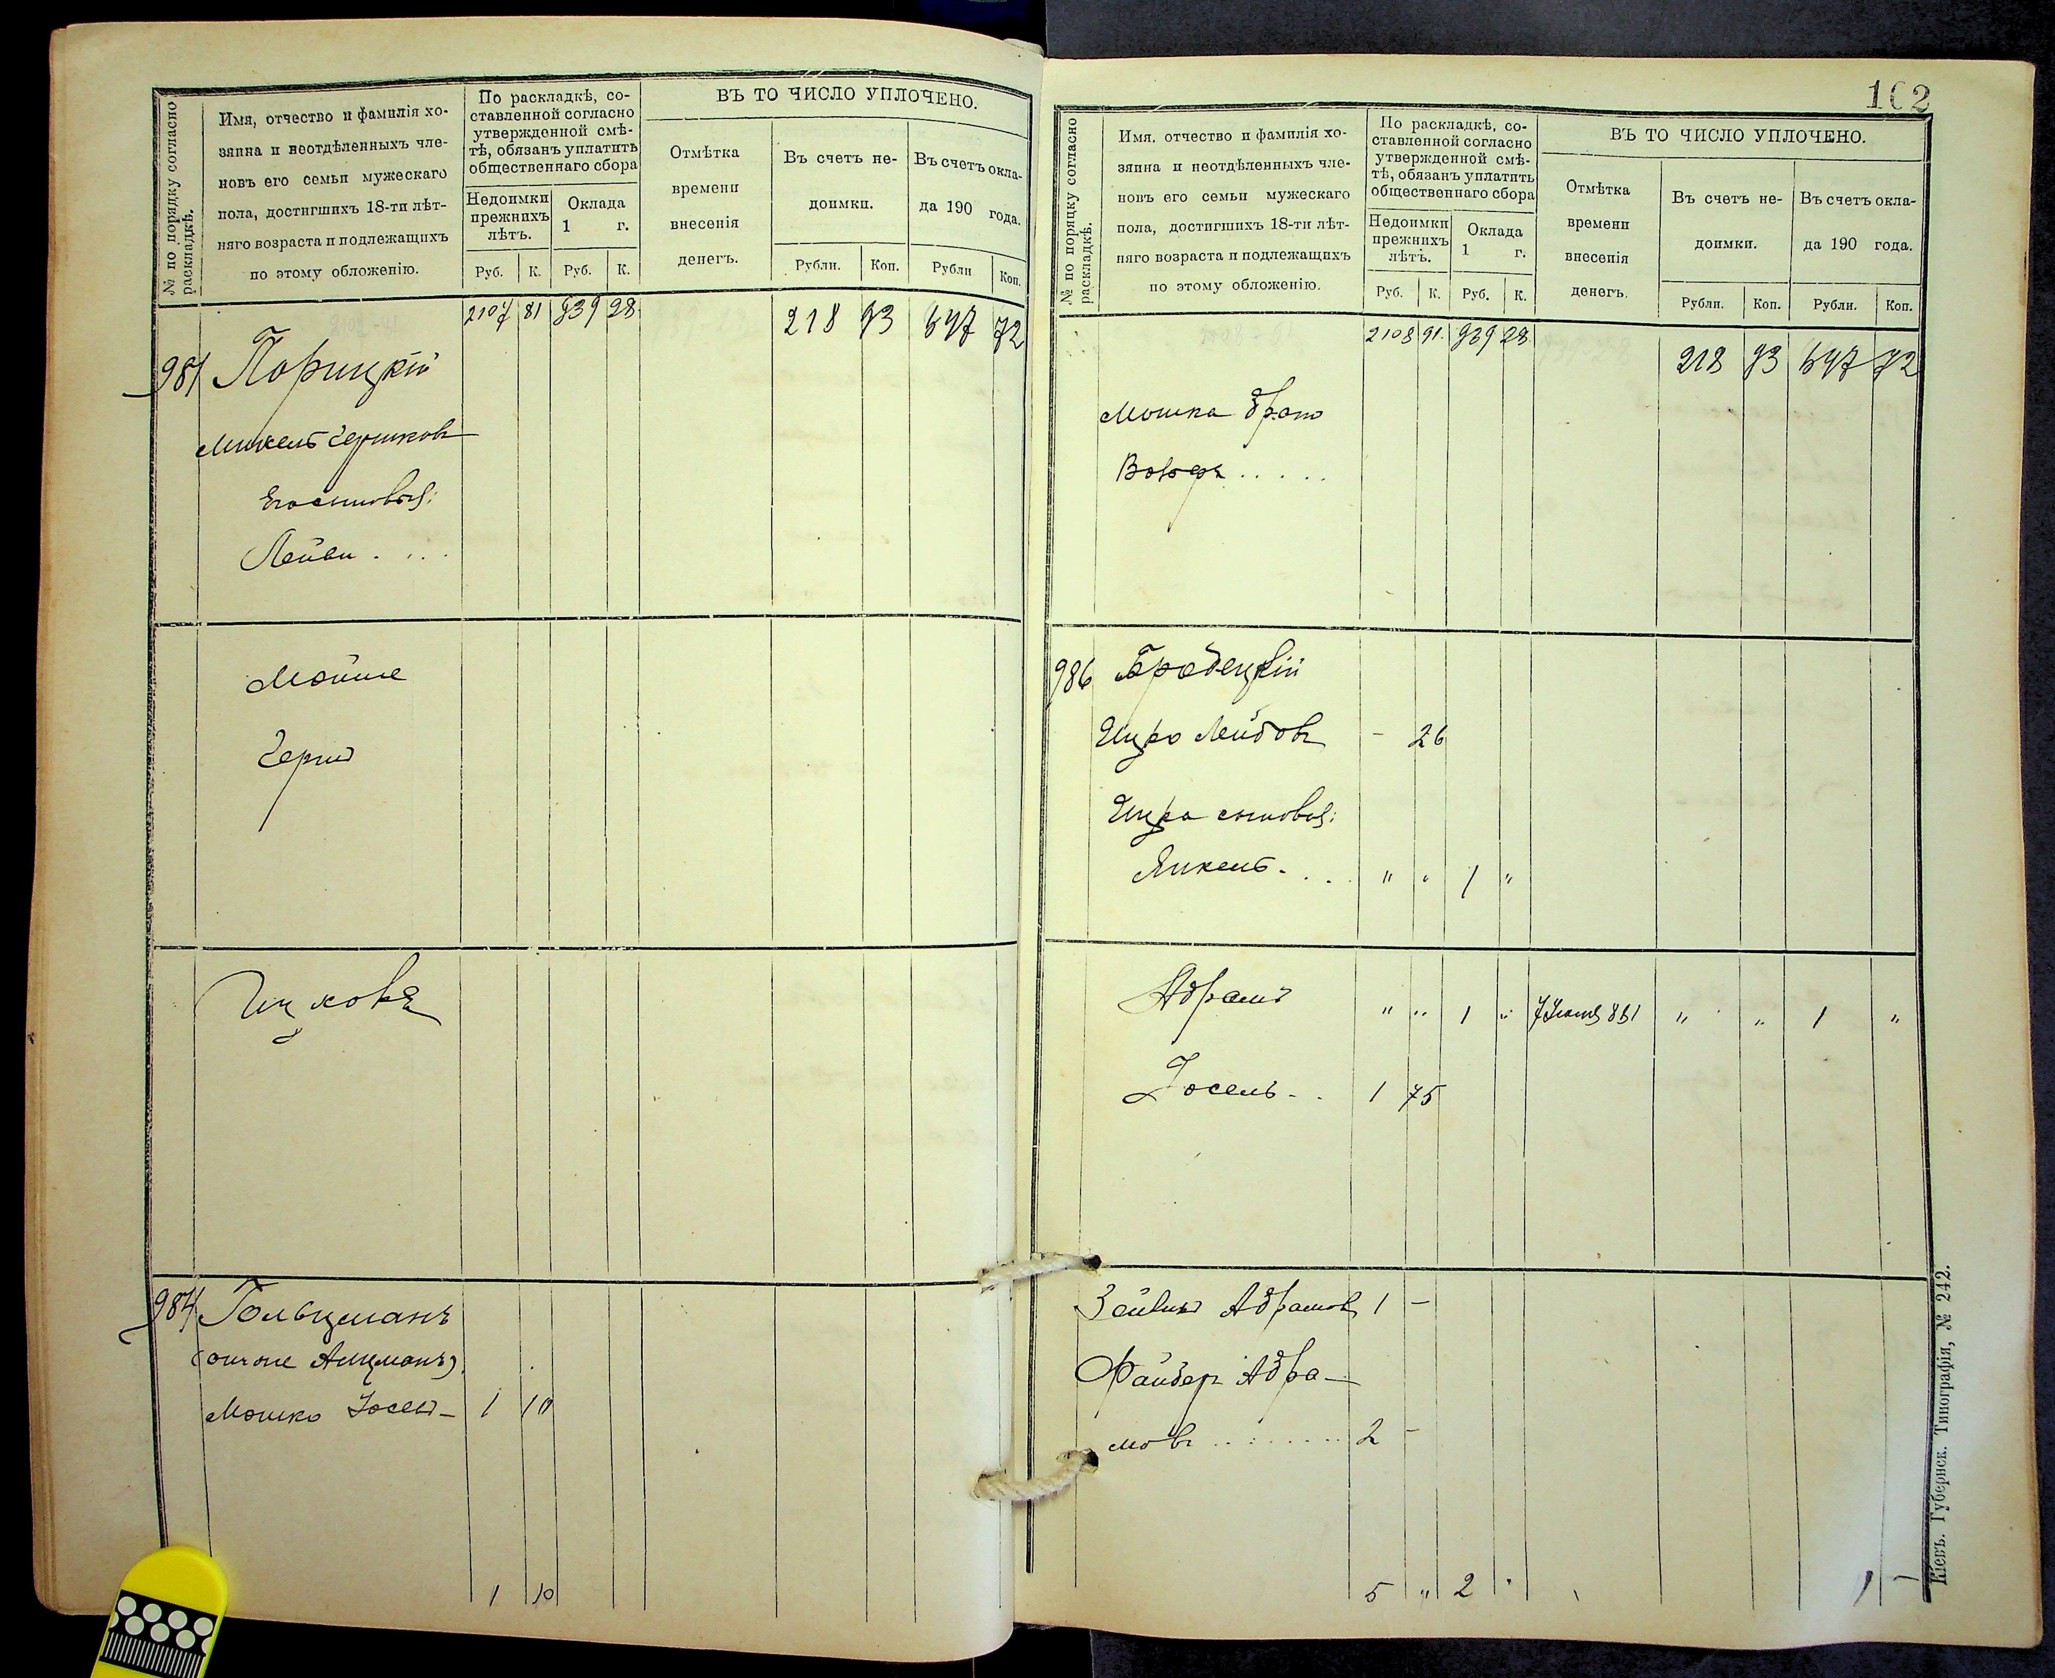 № по порядку согласно раскладкѣ.
Имя, отчество и фамилія хо-
зяина и неотдѣленныхъ чле-
новъ его семьи мужескаго
пола, достигшихъ 18-ти лѣт-
няго возраста и подлежащихъ
по этому обложенію.
По раскладкѣ, со-
ставленной согласно
утвержденной смѣ-
тѣ, обязанъ уплатить
общественнаго сбора
Недоимки прежнихъ лѣтъ.
Оклада 1 г.
Руб. К. Руб. К.
ВЪ ТО ЧИСЛО УПЛОЧЕНО.
Отмѣтка
времени
внесенія
денегъ.
Въ счетъ не-
доимки.
Въ счетъ окла-
да 190 года.
Рубли. Коп. Рубли Коп.
2107 81 939 28 218 93 647 72
981 Порицкій
Микель Гершков
Его сыновья:
Лейви . . .
Мойше
Герш
Ицковъ
984 Гольцманъ
(онже Алцманъ)
Мошко Іосел- 1 10
1 10
102
№ по порядку согласно раскладкѣ.
Имя, отчество и фамилія хо-
зяина и неотдѣленныхъ чле-
новъ его семьи мужескаго
пола, достигшихъ 18-ти лѣт-
няго возраста и подлежащихъ
по этому обложенію.
По раскладкѣ, со-
ставленной согласно
утвержденной смѣ-
тѣ, обязанъ уплатить
общественнаго сбора
Недоимки прежнихъ лѣтъ.
Оклада 1 г.
Руб. К. Руб. К.
ВЪ ТО ЧИСЛО УПЛОЧЕНО.
Отмѣтка
времени
внесенія
денегъ.
Въ счетъ не-
доимки.
Въ счетъ окла-
да 190 года.
Рубли. Коп. Рубли. Коп.
2108 91 939 28 218 93 647 72
Мошка братъ
986 Бродецкій
Ицко Лейбовъ - 26
Ицка сыновья:
Янкель . . . " " 1 "
Абрамъ " " 1 " " " 1 "
Іосель - . 1 75
Зейвил Абрамов 1 —
Файбер Абра-
мовъ . . . . . . . 2 -
5 " 2 " 1 -
Кіевъ. Губернск. Типографія, № 242.